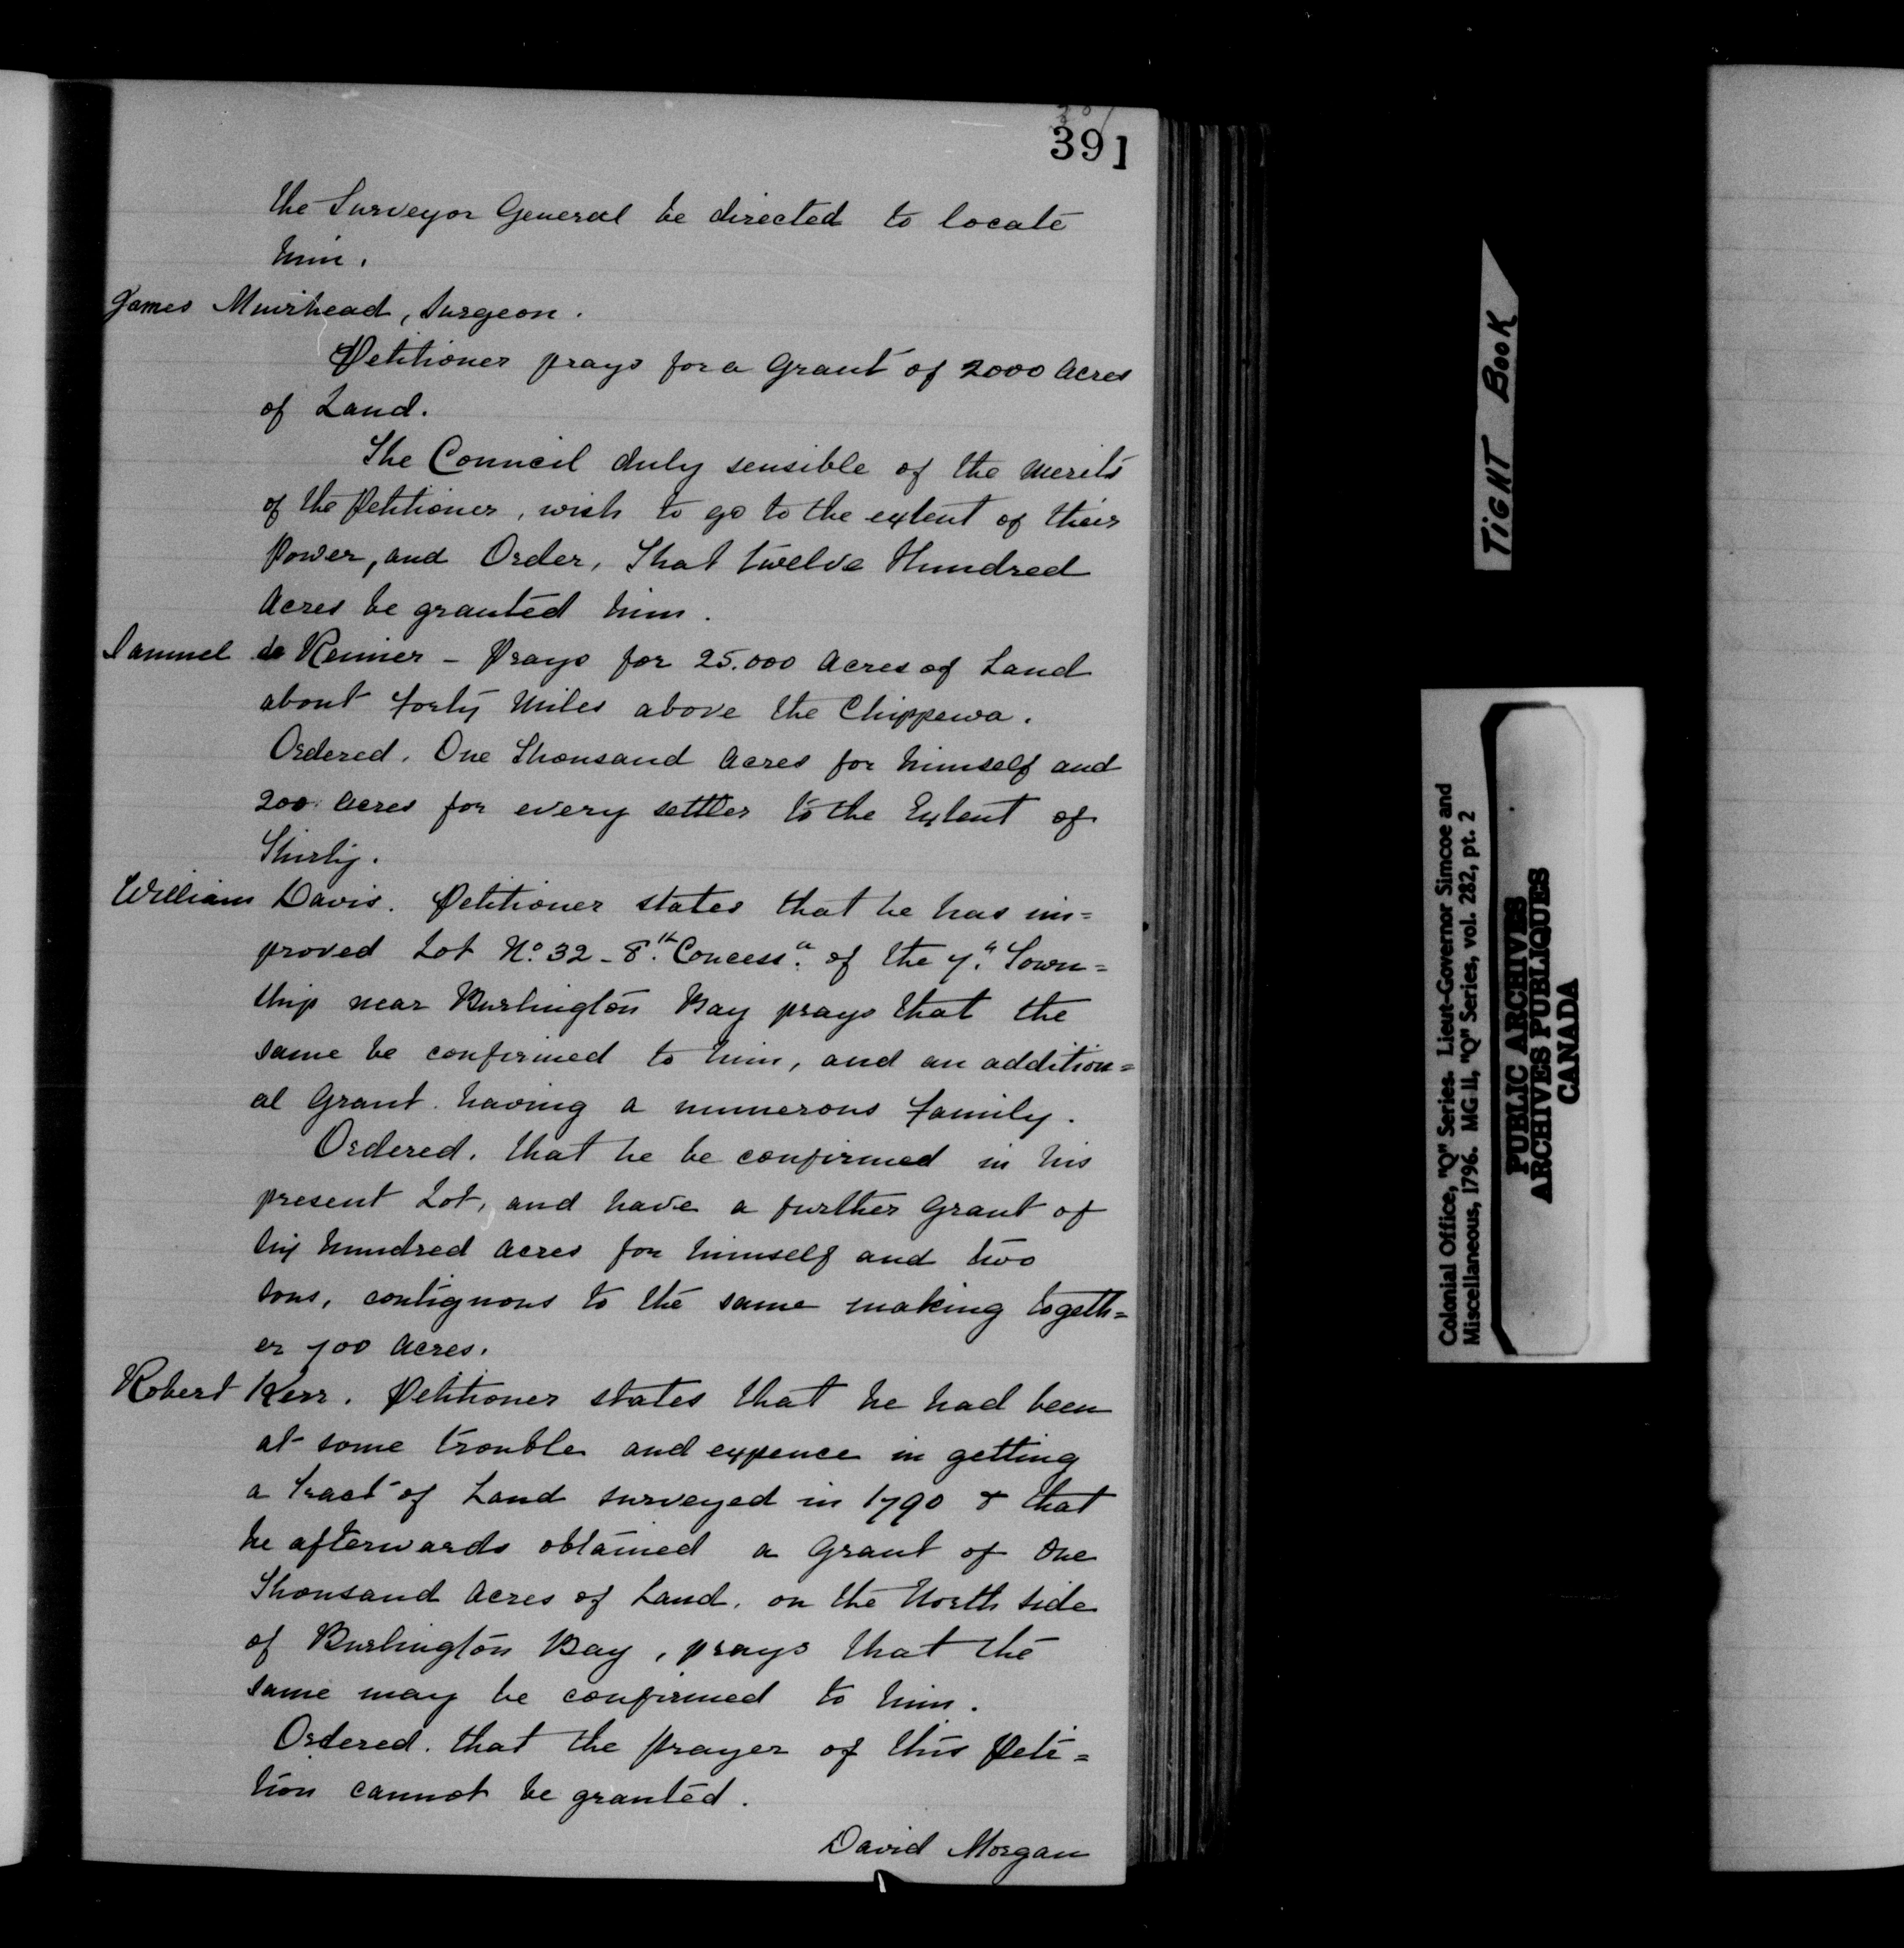 391
the Surveyor General be directed to locate
him.
James Muirhead, Surgeon.
Petitioner prays for a Grant of 2000 Acres
of Land.
The Council duly sensible of the Merits
of the Petitioner, wish to go to the extent of their
Power, and Order, That twelve Hundred
Acres be granted him.
Samuel de Renner - Prays for 25.000 Acres of Land
about forty Miles above the Chippewa.
Ordered. One Thousand Acres for himself and
200 Acres for every settler to the Extent of
Thirty.
William Davis. Petitioner states that he has im=
proved Lot No. 32 - 8th Concessn. of the 7.th Town=
ship near Burlington Bay prays that the
same be confirmed to him, and an addition=
al Grant having a numerous family.
Ordered. that he be confirmed in his
present Lot, and have a further Grant of
Six hundred Acres for himself and two
sons, contiguous to the same making togeth=
er 700 Acres.
Robert Kerr. Petitioner states that he had been
at some trouble and expence in getting
a Tract of Land surveyed in 1790 & that
he afterwards obtained a Grant of One
Thousand Acres of Land, on the North side
of Burlington Bay, prays that the
same may be confirmed to him.
Ordered. that the Prayer of this Peti=
tion cannot be granted.
David Morgan
TIGHT BOOK
Colonial Office, "Q" Series. Lieut-Governor Simcoe and
Miscellaneous, 1796. MG 11, "Q" Series, vol. 282, pt. 2
PUBLIC ARCHIVES
ARCHIVES PUBLIQUES
CANADA